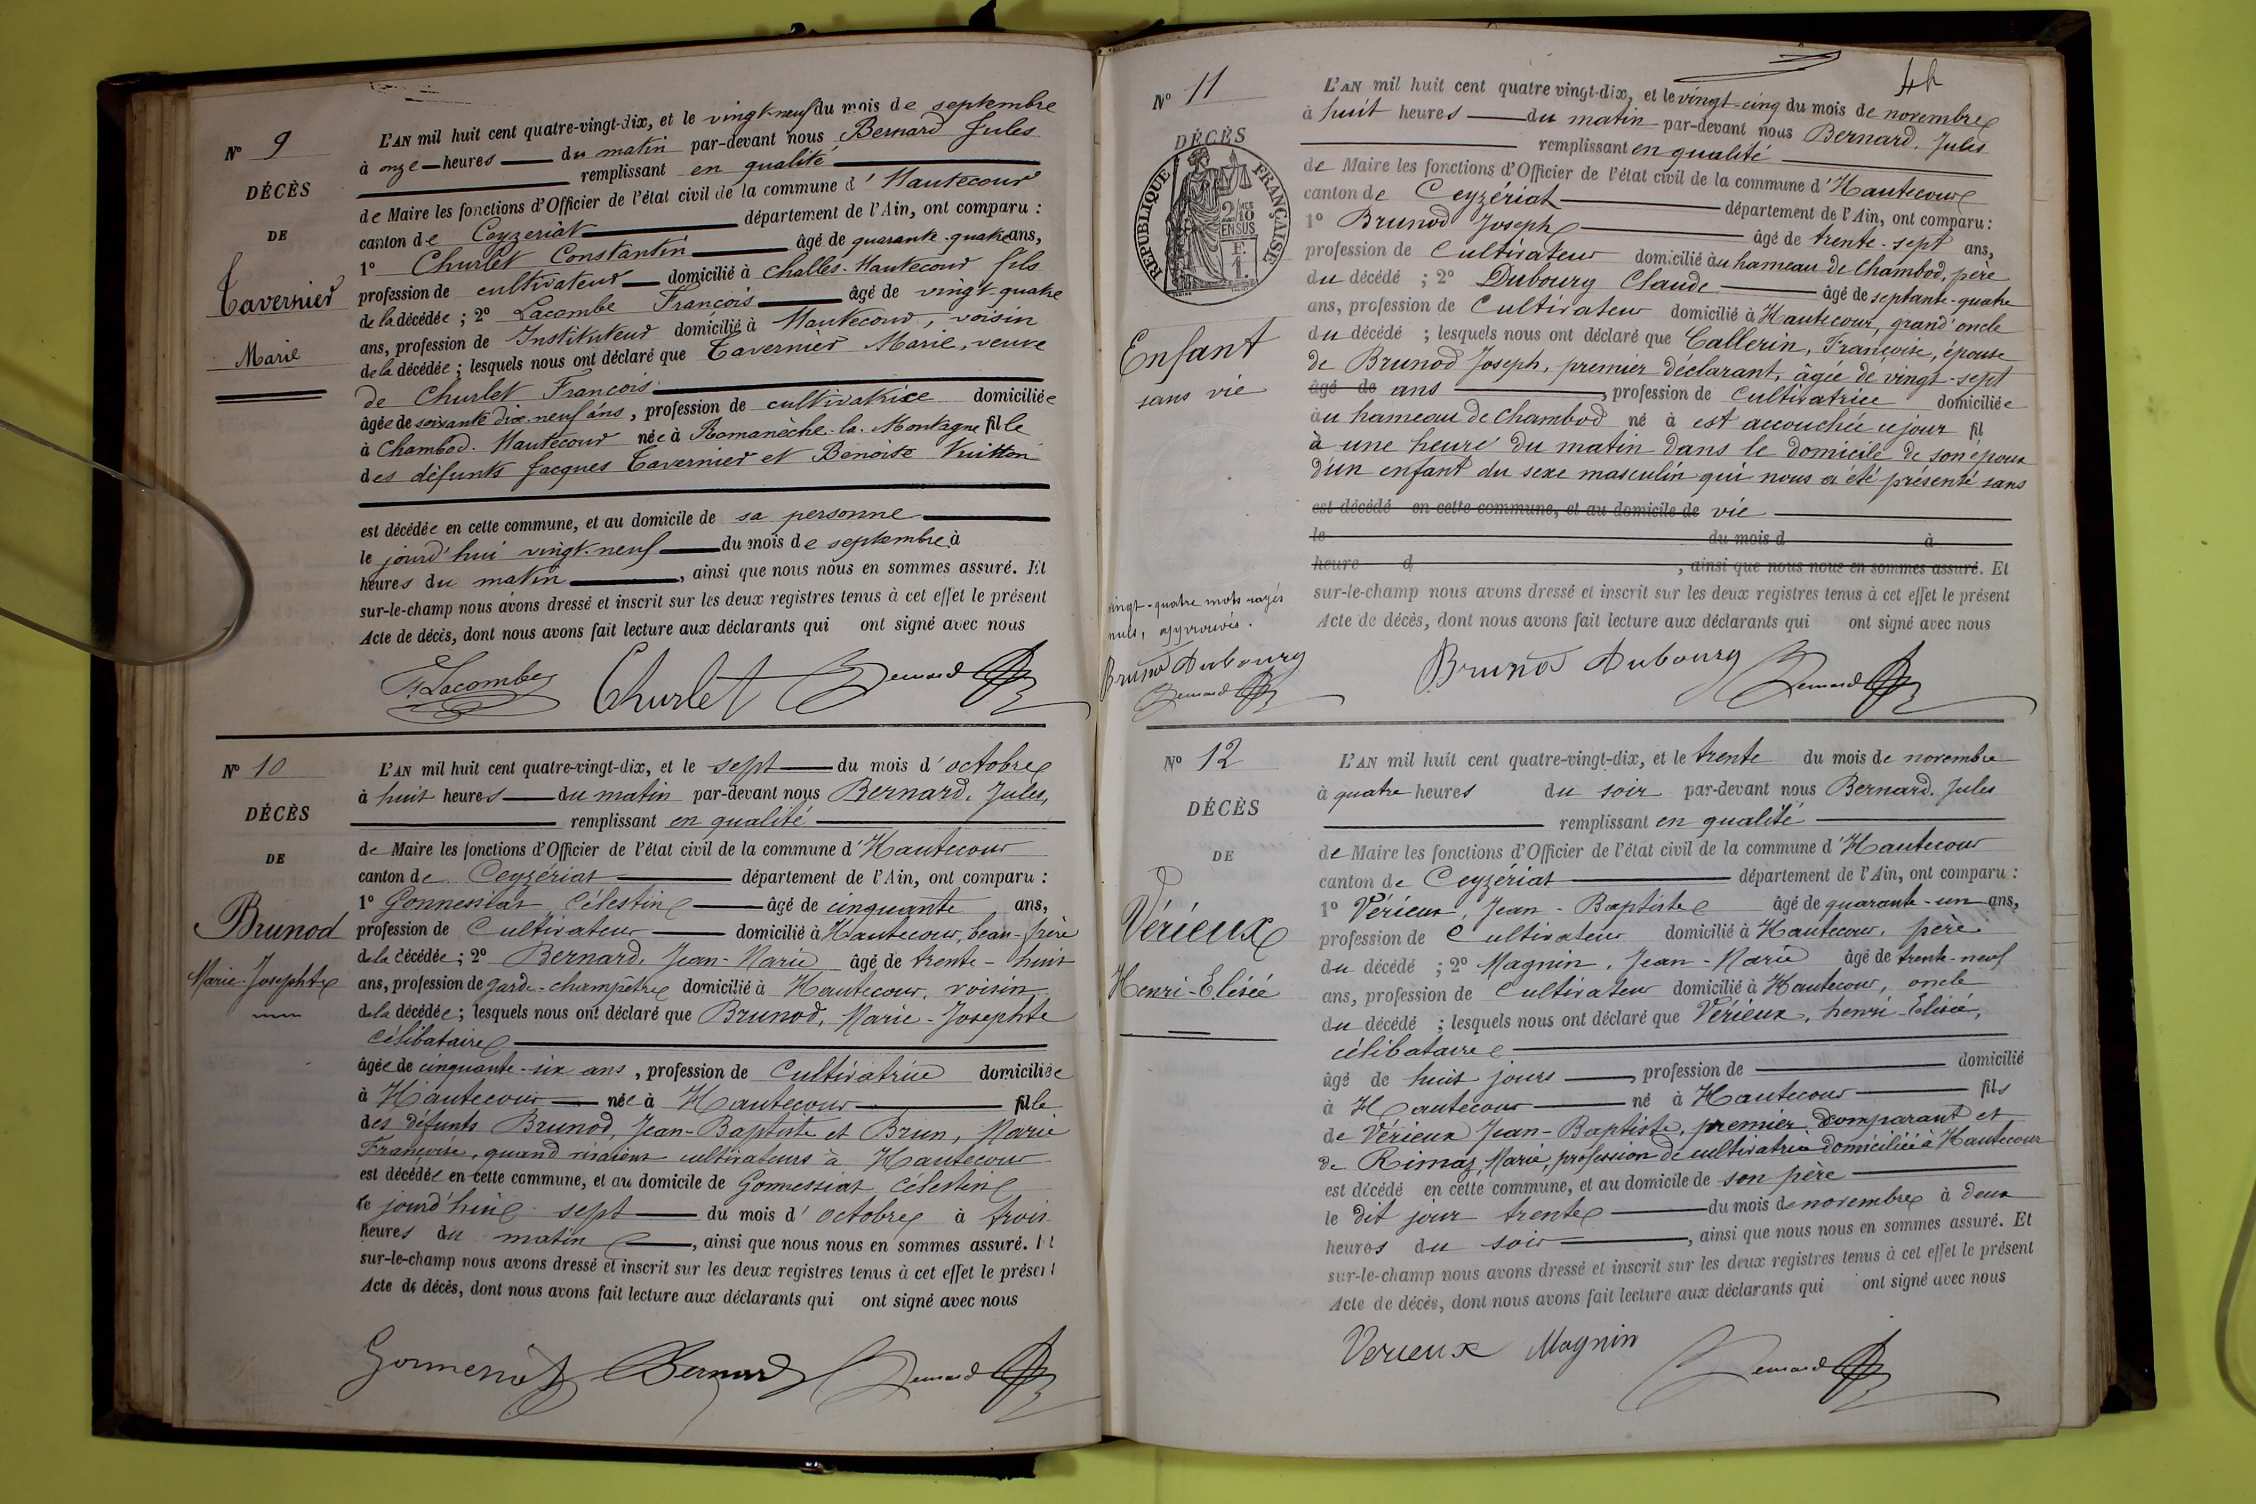 N° 9
DÉCÈS
DE
Tavernier
Marie
L'AN mil huit cent quatre-vingt-dix, et le vingt-neuf du mois de septembre
à onze heures du matin par-devant nous Bernard Jules
remplissant en qualité
de Maire les fonctions d'Officier de l'état civil de la commune d'Hautecour
canton de Ceyzeriat département de l'Ain, ont comparu :
1° Churlet Constantin âgé de quarante-quatre ans,
profession de cultivateur domicilié à Challes-Hautecour fils
de la décédée ; 2° Lacombe François âgé de vingt-quatre
ans, profession de Instituteur domicilié à Hautecour, voisin
de la décédée ; lesquels nous ont déclaré que Tavernier Marie, veuve
de Churlet François
âgée de soixante dix-neuf ans, profession de cultivatrice domiciliée
à Chambod-Hautecour née à Romanèche-la-Montagne fille
des défunts Jacques Tavernier et Benoîse Vuitton
est décédée en cette commune, et au domicile de sa personne
le jourd'hui vingt-neuf du mois de septembre à
heures du matin, ainsi que nous nous en sommes assuré. Et
sur-le-champ nous avons dressé et inscrit sur les deux registres tenus à cet effet le présent
Acte de décès, dont nous avons fait lecture aux déclarants qui ont signé avec nous
F. Lacombe Churlet Bernard
N° 10
DÉCÈS
DE
Brunod
Marie-Josephte
L'AN mil huit cent quatre-vingt-dix, et le sept du mois d'octobre
à huit heures du matin par-devant nous Bernard, Jules,
remplissant en qualité
de Maire les fonctions d'Officier de l'état civil de la commune d'Hautecour
canton de Ceyzériat département de l'Ain, ont comparu :
1° Gonnessiat Célestin âgé de cinquante ans,
profession de Cultivateur domicilié à Hautecour, beau-frère
de la décédée ; 2° Bernard, Jean-Marie âgé de trente-huit
ans, profession de garde-champêtre domicilié à Hautecour, voisin
de la décédée ; lesquels nous ont déclaré que Brunod, Marie-Josephte
célibataire
âgée de cinquante-six ans, profession de Cultivatrice domiciliée
à Hautecour née à Hautecour fille
des défunts Brunod, Jean-Baptiste et Brun, Marie
Françoise, quand vivaient cultivateurs à Hautecour
est décédée en cette commune, et au domicile de Gonnessiat Célestin
le jourd'hui sept du mois d'octobre à trois
heures du matin, ainsi que nous nous en sommes assuré. Et
sur-le-champ nous avons dressé et inscrit sur les deux registres tenus à cet effet le présent
Acte de décès, dont nous avons fait lecture aux déclarants qui ont signé avec nous
Gonnessiat Bernard Bernard
4h
N° 11
DÉCÈS
RÉPUBLIQUE FRANÇAISE
2/10
EN SUS
F.
1.
Enfant
sans vie
L'AN mil huit cent quatre vingt-dix, et le vingt-cinq du mois de novembre
à huit heures du matin par-devant nous Bernard, Jules
remplissant en qualité
de Maire les fonctions d'Officier de l'état civil de la commune d'Hautecour
canton de Ceyzériat département de l'Ain, ont comparu :
1° Brunod Joseph âgé de trente-sept ans,
profession de Cultivateur domicilié au hameau de Chambod, père
du décédé ; 2° Dubourg Claude âgé de septante-quatre
ans, profession de Cultivateur domicilié à Hautecour, grand oncle
du décédé ; lesquels nous ont déclaré que Callerin, Françoise, épouse
de Brunod Joseph, premier déclarant, âgée de vingt-sept
âgé de ans, profession de Cultivatrice domiciliée
au hameau de Chambod né à est accouchée ce jour fil
à une heure du matin dans le domicile de son époux
d'un enfant du sexe masculin qui nous a été présenté sans
est décédé en cette commune, et au domicile de vie
le du mois d à
heure d, ainsi que nous nous en sommes assuré. Et
sur-le-champ nous avons dressé et inscrit sur les deux registres tenus à cet effet le présent
Acte de décès, dont nous avons fait lecture aux déclarants qui ont signé avec nous
vingt-quatre mots rayés
nuls, approuvés.
Brunod Dubourg
Bernard
Brunod Dubourg Bernard
N° 12
DÉCÈS
DE
Vérieux
Henri-Elisée
L'AN mil huit cent quatre-vingt-dix, et le trente du mois de novembre
à quatre heures du soir par-devant nous Bernard, Jules
remplissant en qualité
de Maire les fonctions d'Officier de l'état civil de la commune d'Hautecour
canton de Ceyzériat département de l'Ain, ont comparu :
1° Vérieux, Jean-Baptiste âgé de quarante-un ans,
profession de Cultivateur domicilié à Hautecour, père
du décédé ; 2° Magnin, Jean-Marie âgé de trente-neuf
ans, profession de Cultivateur domicilié à Hautecour, oncle
du décédé ; lesquels nous ont déclaré que Vérieux, henri-Elisée,
célibataire
âgé de huit jours, profession de domicilié
à Hautecour né à Hautecour fils
de Vérieux Jean-Baptiste, premier comparant et
de Rimaz, Marie, profession de cultivatrice domiciliée à Hautecour
est décédé en cette commune, et au domicile de son père
le dit jour trente du mois de novembre à deux
heures du soir, ainsi que nous nous en sommes assuré. Et
sur-le-champ nous avons dressé et inscrit sur les deux registres tenus à cet effet le présent
Acte de décès, dont nous avons fait lecture aux déclarants qui ont signé avec nous
Verieux Magnin Bernard